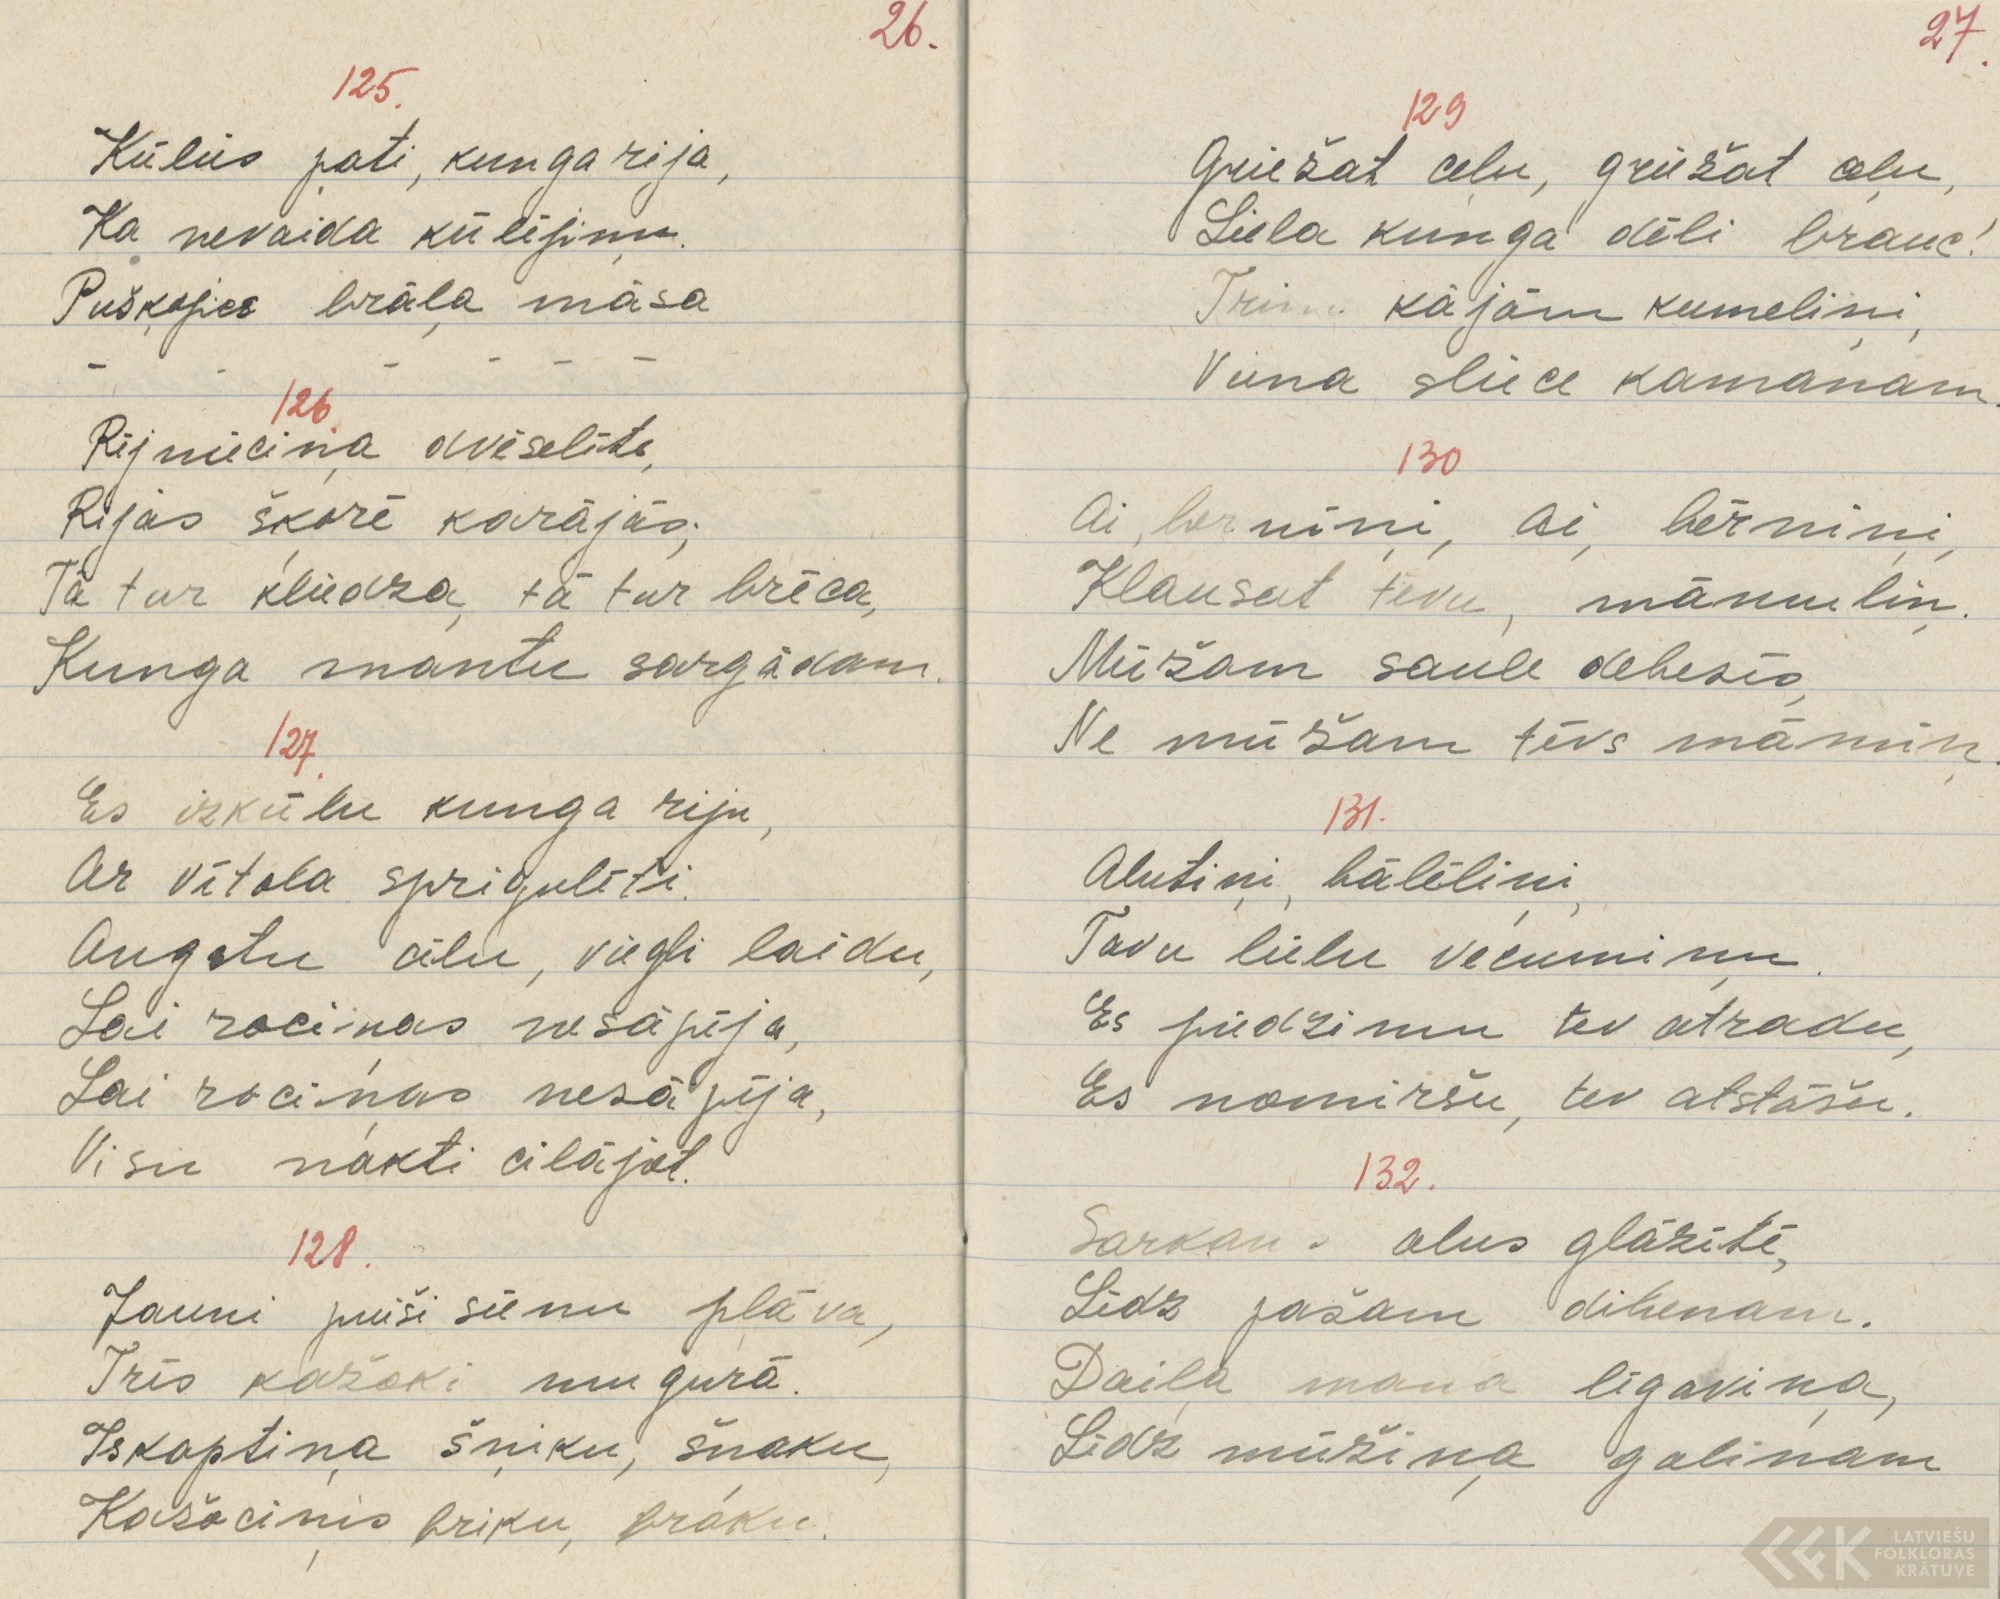 26.
125.
Kūlies pati, kunga rija,
Ka nevaida kūlējiņu.
Puškojies brāļa māsa
- - - - - -
126
Rijnieciņa dvēselīte,
Rijas škorē karājās;
Tā tur kliedza, tā tur brēca,
Kunga mantu sargādam.
127.
Es izkūlu kunga riju,
Ar vītola sprigulīti.
Augstu cēlu, viegli laidu,
Lai rociņas nesāpēja,
Lai rociņas nesāpēja,
Visu nakti cilājot.
128.
Jauni puiši sienu pļāva,
Trīs kažoki mugurā.
Iskaptiņa šņiku, šņaku,
Kažociņis briku, braku.
27.
129
Griežat ceļu, griežat ceļu,
Liela kunga dēli brauc!
kājām kumeliņi,
Viena sliece kamanam.
130
Ai, berniņi, ai, bērniņi,
Klausat tēvu, māmuliņ.
Mūžam saule debesīs,
Ne mūžam tēvs māmiņ.
131.
Alutiņi, bālēliņi,
Tavu lielu vecumiņu.
Es piedzimu tev atradu,
Es nomiršu, tev atstāšu.
132.
Sarkans alus glāzītē,
Līdz pašam dibenam.
Daiļa mana līgaviņa,
Līdz mūžiņa galiņam
LATVIEŠU
FOLKLORAS
KRĀTUVE